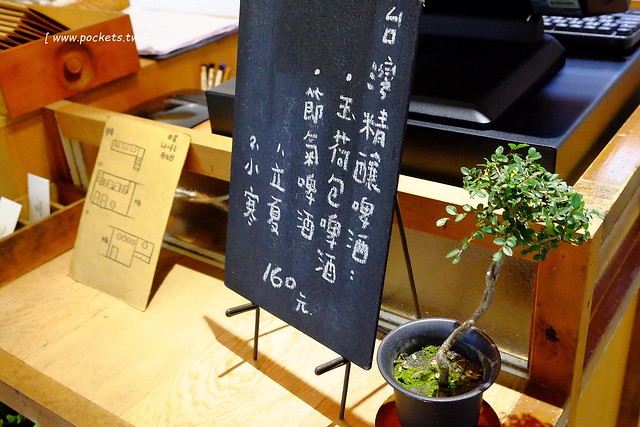 [ www.pockets.tw ]
台灣精釀啤酒：
・玉荷包啤酒
・節氣啤酒
1、立夏
2、小寒
160元